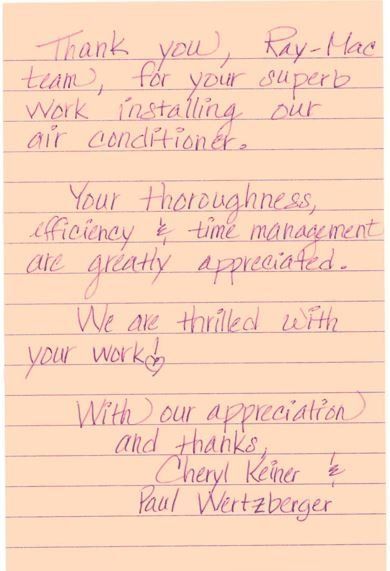 Thank you, Ray-Mac
team, for your superb
work installing our
air conditioner.
Your thoroughness,
efficiency & time management
are greatly appreciated.
We are thrilled with
your work!
With our appreciation
and thanks,
Cheryl Keiner &
Paul Wertzberger